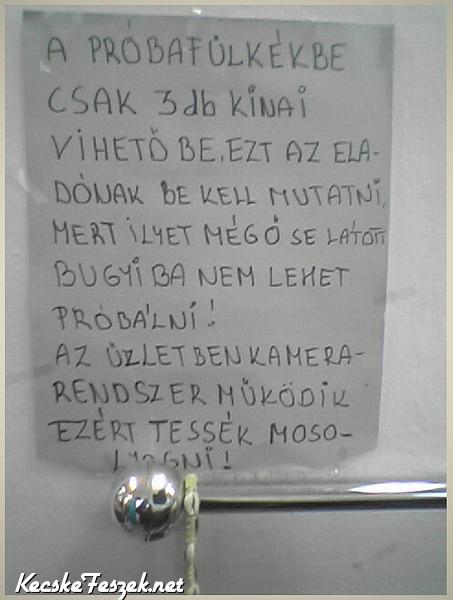 A PRÓBAFÜLKÉKBE
CSAK 3db KÍNAI
VIHETŐ BE, EZT AZ ELA-
DÓNAK BE KELL MUTATNI,
MERT ILYET MÉG Ő SE LÁTOTT
BUGYIBA NEM LEHET
PRÓBÁLNI!
AZ ÜZLETBEN KAMERA-
RENDSZER MŰKÖDIK
EZÉRT TESSÉK MOSO-
LYOGNI!
KecskeFeszek.net